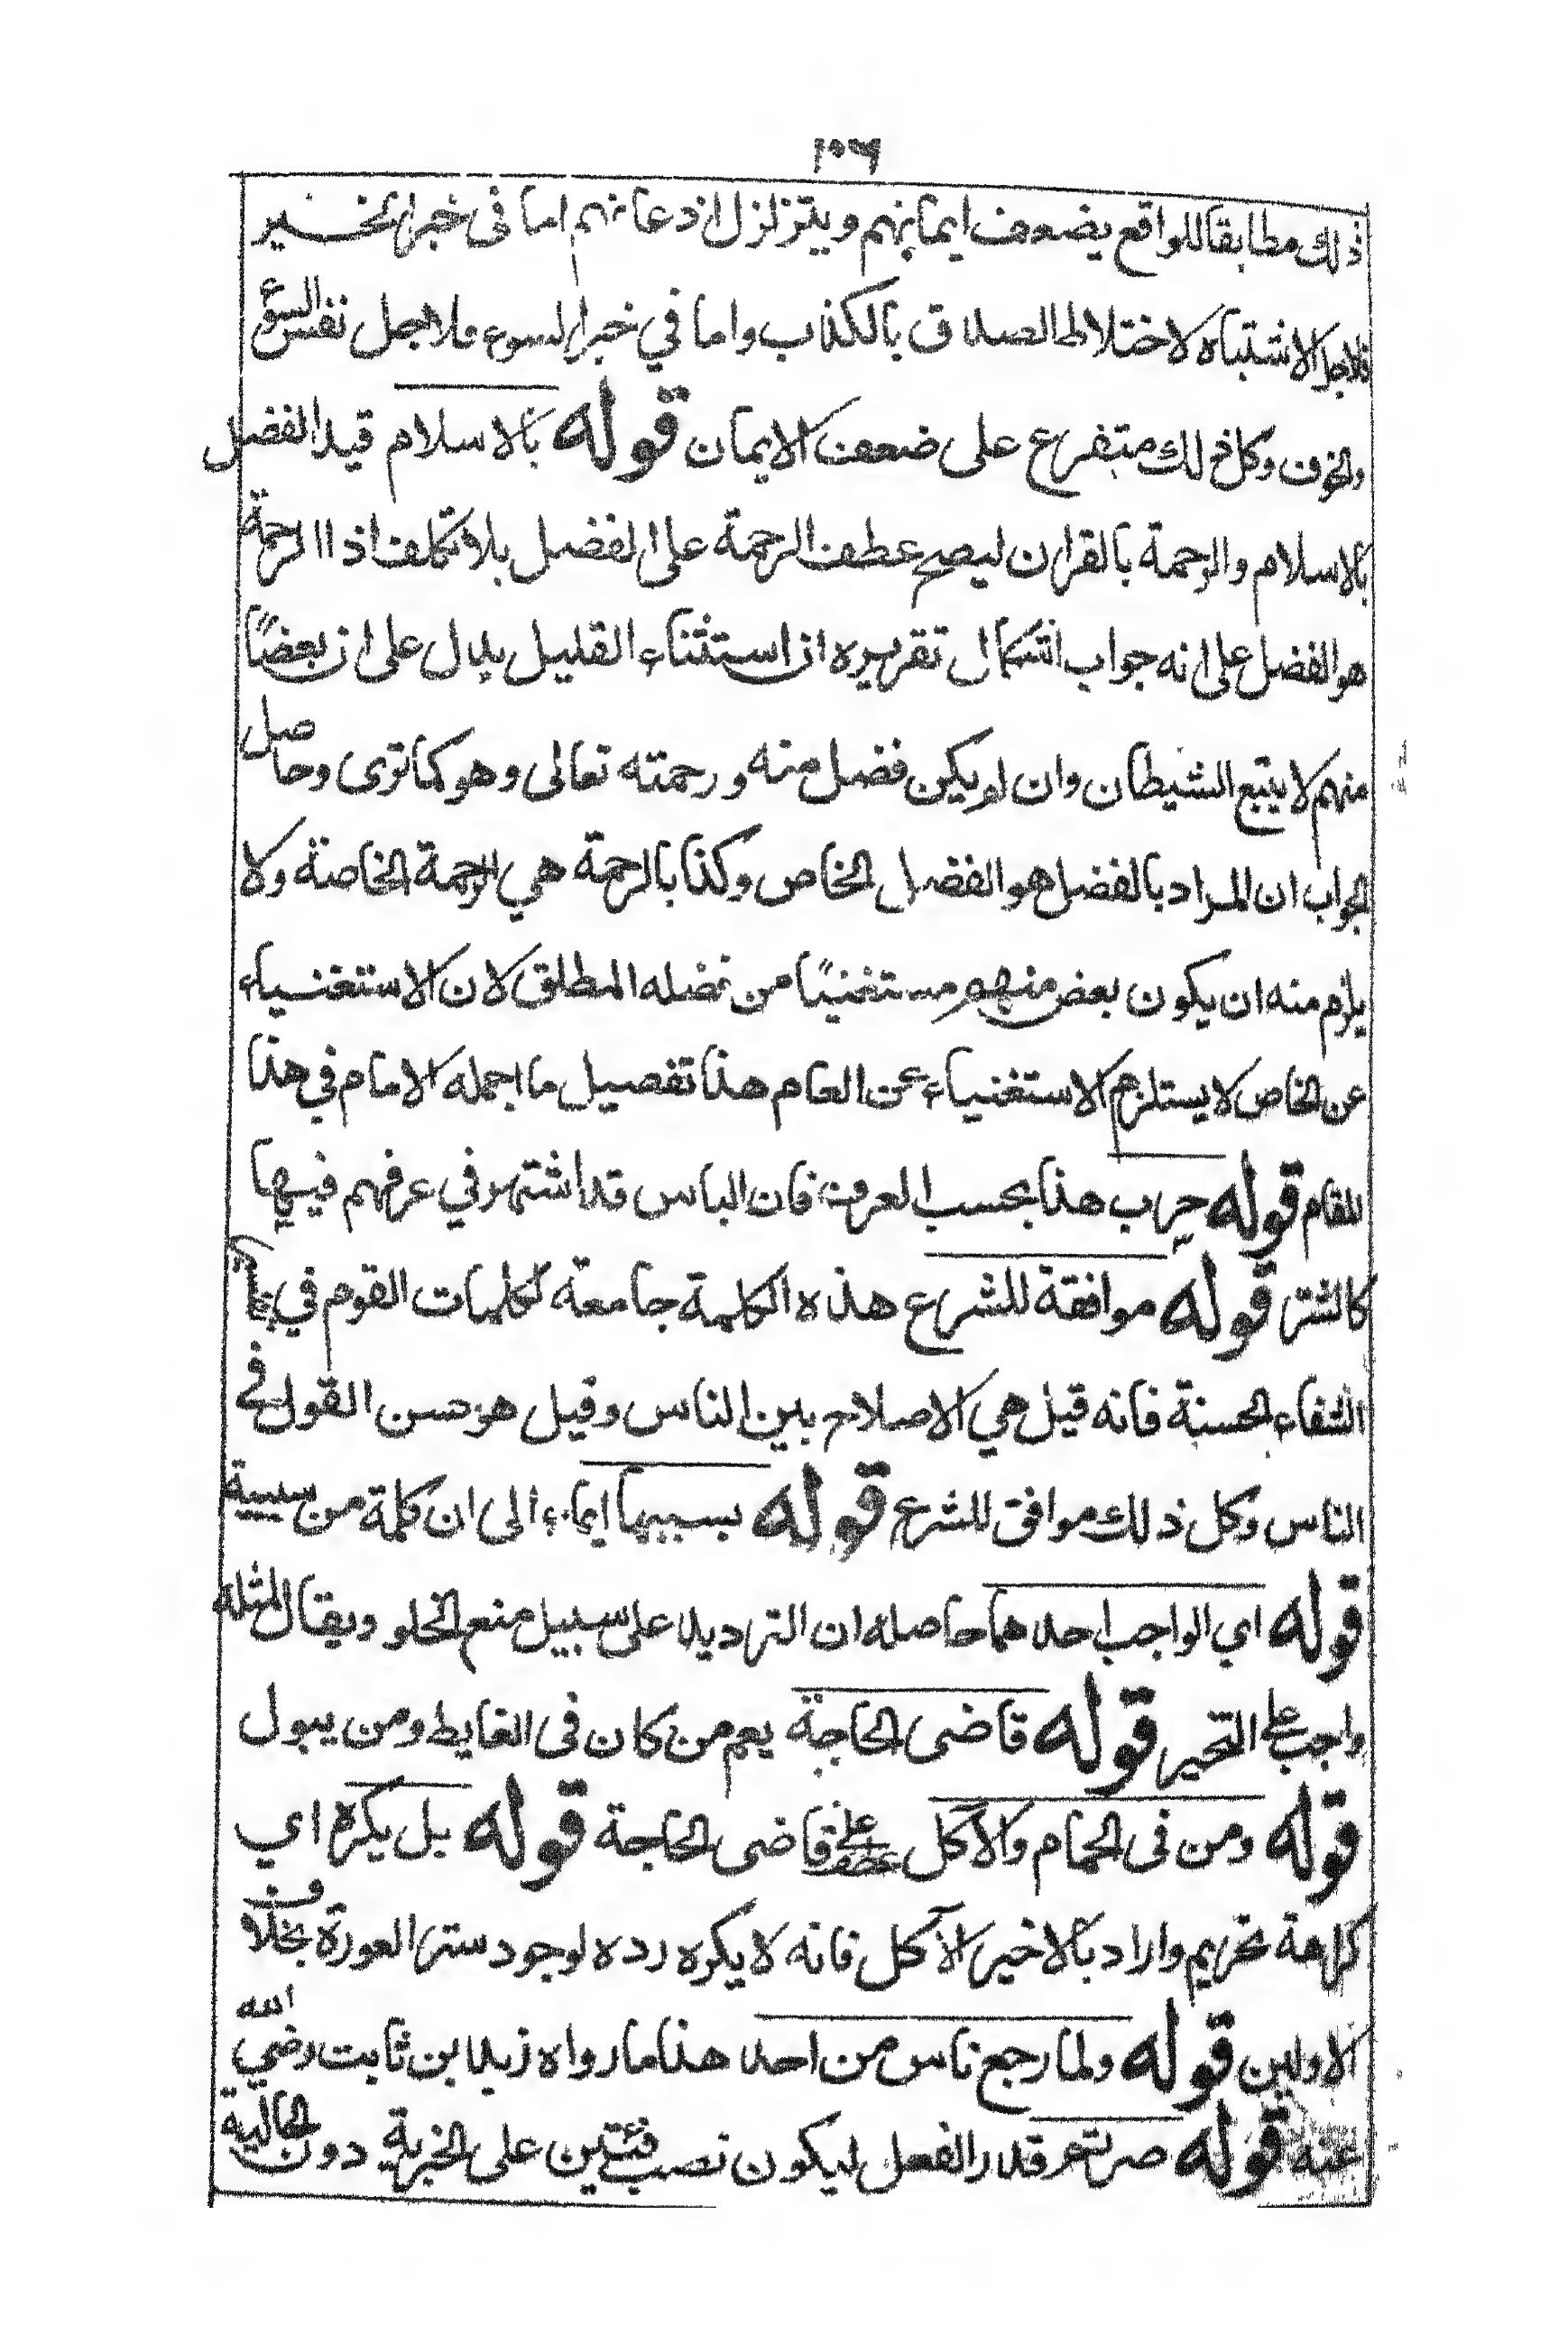 ١٠٦
ذلك مطابقا للواقع يضعف ايمانهم ويتزلزل اذعانهم اما في خبر الخير
فلاجل الاشتباه لاختلاط الصادق بالكذب واما في خبر السوء فلاجل نفس السوء
والخوف وكل ذلك متفرع على ضعف الايمان قوله بالاسلام قيد الفضل
بالاسلام والرحمة بالقران ليصح عطف الرحمة على الفضل بلا تكلف اذ الرحمة
هو الفضل على انه جواب اشكال تقريره ان استثناء القليل يدل على ان بعضًا
منهم لا يتبع الشيطان وان لم يكن فضل منه ورحمته تعالى وهو كما ترى وحاصل
الجواب ان المراد بالفضل هو الفضل الخاص وكذا بالرحمة هي الرحمة الخاصة ولا
يلزم منه ان يكون بعض منهم مستغنيًا من فضله المطلق لان الاستغنياء
عن الخاص لا يستلزم الاستغنياء عن العام هذا تفصيل ما اجمله الامام في هذا
المقام قوله حرب هذا بحسب العرف فان الباس قد اشتهر في عرفهم فيها
كالشتر قوله موافقة للشرع هذه الكلمة جامعة لكلمات القوم في
الشفاء الحسنة فانه قيل هي الاصلاح بين الناس وقيل هو حسن القول في
الناس وكل ذلك موافق للشرع قوله بسببها ايماء الى ان كلمة من سببية
قوله اي الواجب احدهما حاصله ان الترديد على سبيل منع الخلو ويقال لمثله
واجب على التخير قوله قاضى الحاجة يعم من كان فى الغايط ومن يبول
قوله ومن فى الحمام والآكل عطف على قاضى الحاجة قوله بل يكره اي
كراهة تحريم واراد بالاخير الآكل فانه لا يكره رده لوجود ستر العورة بخلاف
الاولين قوله ولما رجع ناس من احد هذا ما رواه زيد ابن ثابت رضي الله
عنه قوله صرتم قدر الفعل ليكون نصب فئتين على الخبرية دون الحالية